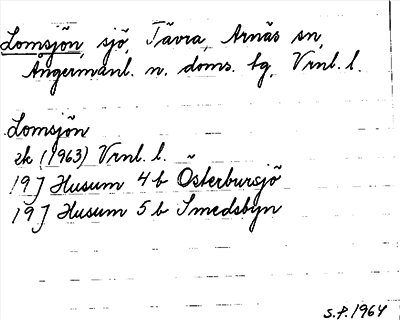 Lomsjön, sjö, Tävra, Arnäs sn,
Ångermanl. n. doms. tg, Vrnl. l.
Lomsjön
ek (1963) Vrnl. l.
19 J Husum 4 b Österbursjö
19 J Husum 5 b Smedsbyn
S.P. 1964